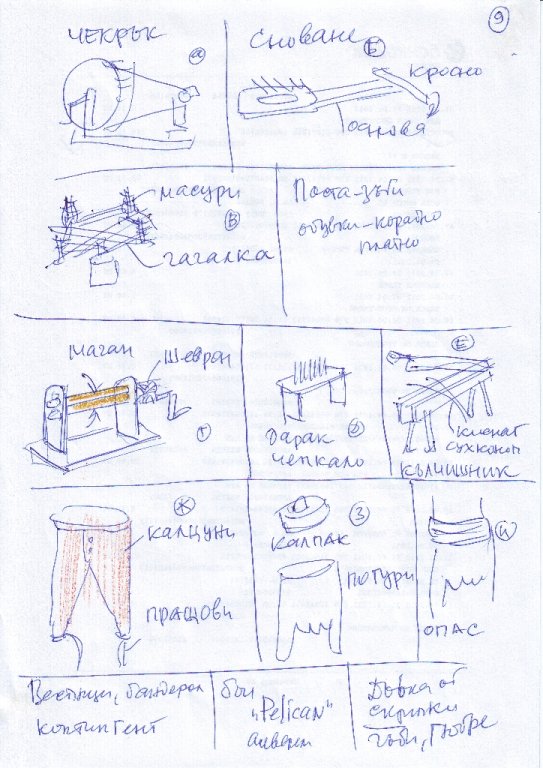 9
ЧЕКРЪК
а
Сноване
Б
Кросно
основа
масури
В
гагалка
Поста-зъби
обувки-корабно
платно
маган
Шеврон
Г
Дарак
чепкало
Е
КЪЛЧИШНИК
Ж
КАЛЦУНИ
ПРАЩОВИ
З
КАЛПАК
ПОТУРИ
И
ОПАС
Вестници, бандерол
контингент
бои
"Pelican"
Дъвка от
скрипки
гъби, Гюбре